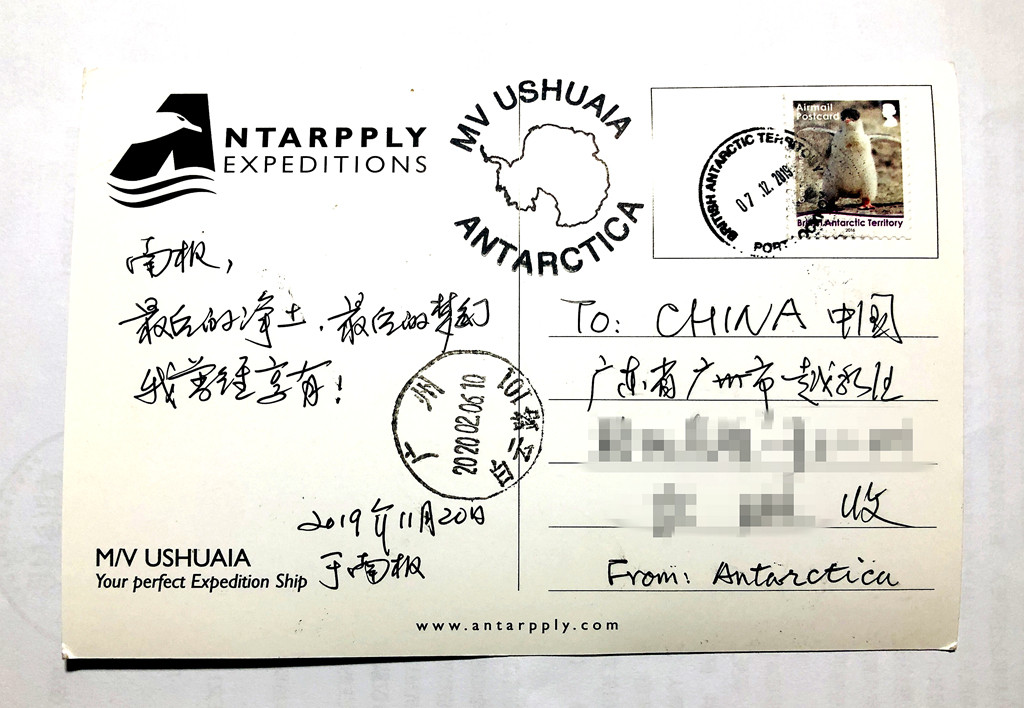 ANTARPPLY
EXPEDITIONS
MV USHUAIA
ANTARCTICA
Airmail
Postcard
British Antarctic Territory
2016
BRITISH ANTARCTIC TERRITORY
07.12.2019
PORT LOCKROY
南极，
最后的净土，最后的梦幻
我曾经享有！
2019年11月20日
于南极
广州
2020.02.06.10
白云站101
M/V USHUAIA
Your perfect Expedition Ship
To: CHINA 中国
广东省广州市越秀区
收
From: Antarctica
www.antarpply.com